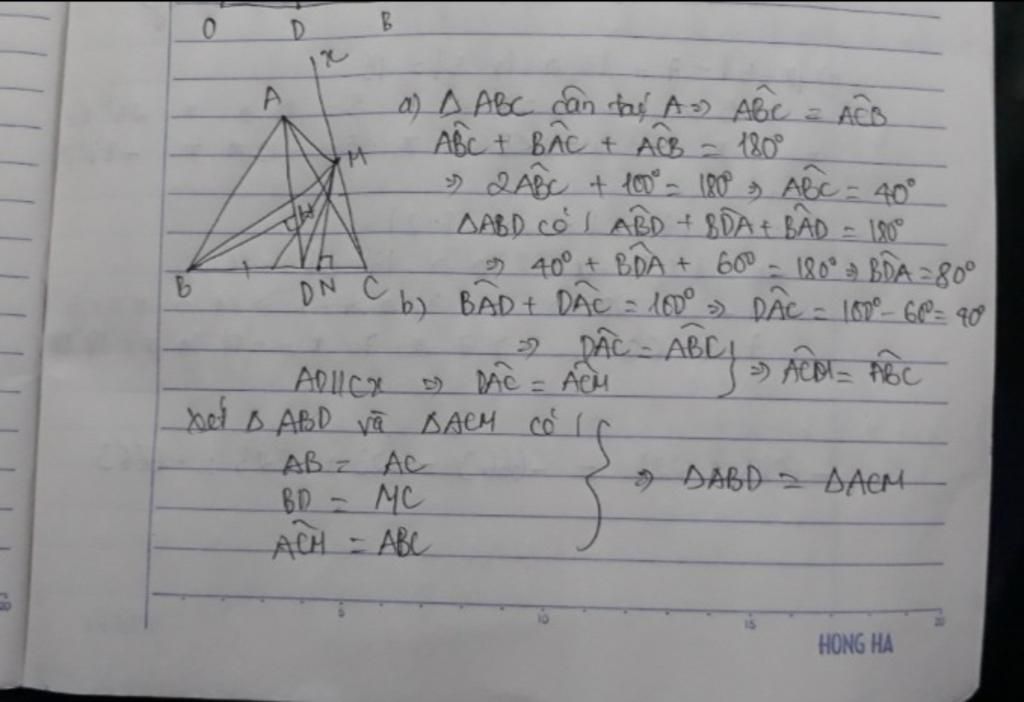 O D B
x
A
M
N
B D N C
a) Δ ABC cân tại A ⇒ ABĈ = AĈB
AB̂C + BÂC + AĈB = 180°
⇒ 2AB̂C + 100° = 180° ⇒ AB̂C = 40°
ΔABD có: AB̂D + BD̂A + BÂD = 180°
⇒ 40° + BD̂A + 60° = 180° ⇒ BD̂A = 80°
b) BÂD + DÂC = 100° ⇒ DÂC = 100° - 60° = 40°
⇒ DÂC = AB̂C
AD//Cx ⇒ DÂC = AĈM } ⇒ AĈM = AB̂C
Xét Δ ABD và ΔACM có:
AB = AC
BD = MC } ⇒ ΔABD = ΔACM
AĈM = ABC
20
5 10 15 20
HONG HA